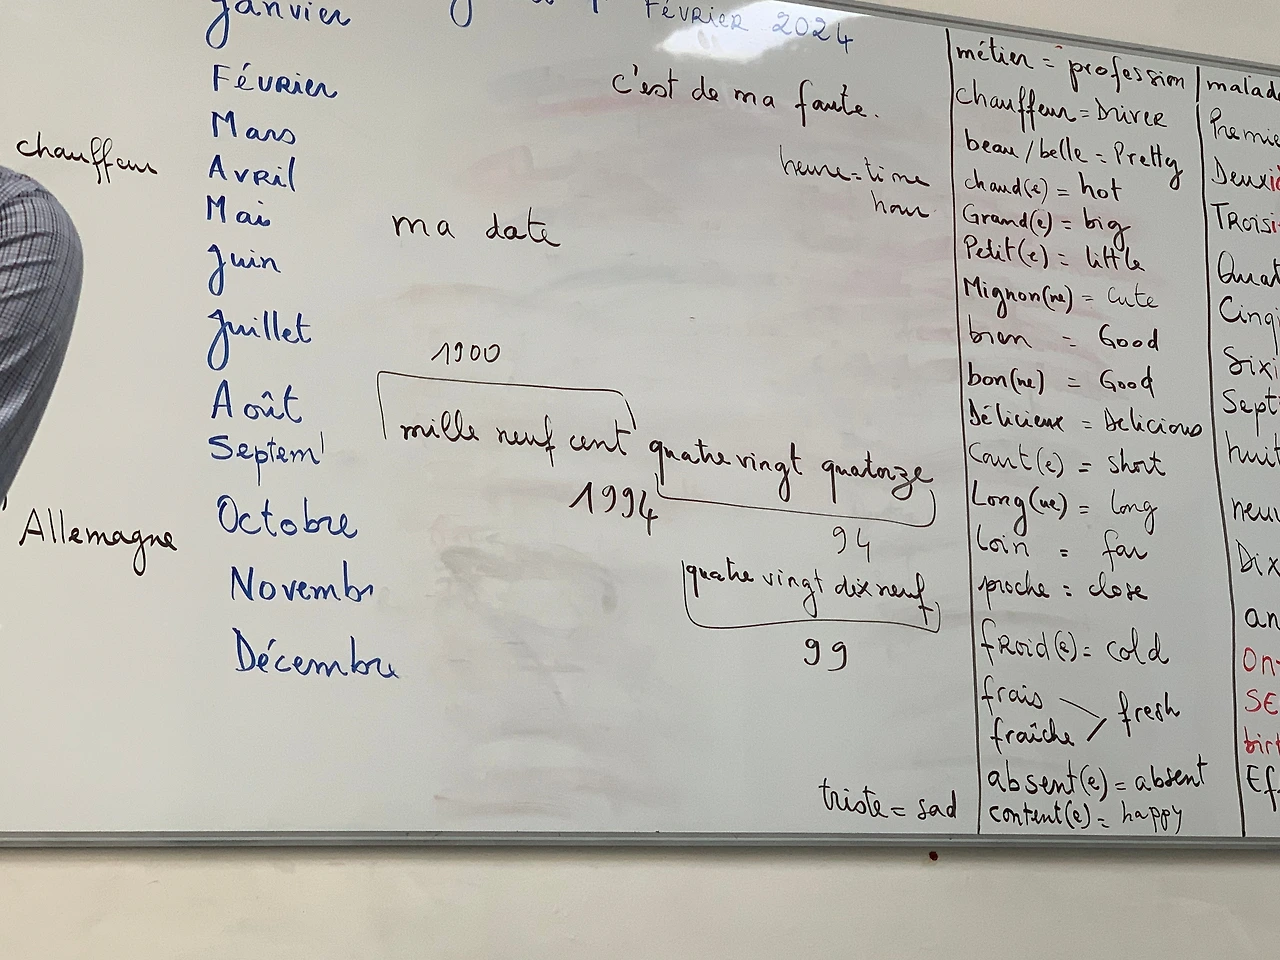 Janvier
Février 2024
Février
Mars
Avril
Mai
Juin
Juillet
Août
Septem'
Octobre
Novembr
Décembre
chauffeur
Allemagne
c'est de ma faute.
heure = time
hour
ma date
1900
mille neuf cent quatre vingt quatorze
1994
94
quatre vingt dix neuf
99
triste = sad
métier = profession
chauffeur = Driver
beau/belle = Pretty
chaud(e) = hot
Grand(e) = big
Petit(e) = little
Mignon(ne) = cute
bien = Good
bon(ne) = Good
Délicieux = Delicious
Court(e) = short
Long(ue) = long
Loin = far
proche = close
froid(e) = cold
frais
fraîche
fresh
absent(e) = absent
content(e) = happy
malad
Premie
Deuxi
Troisi
Quat
Cinq
Sixi
Sept
huit
neuv
Dix
an
On
SE
birt
Ef